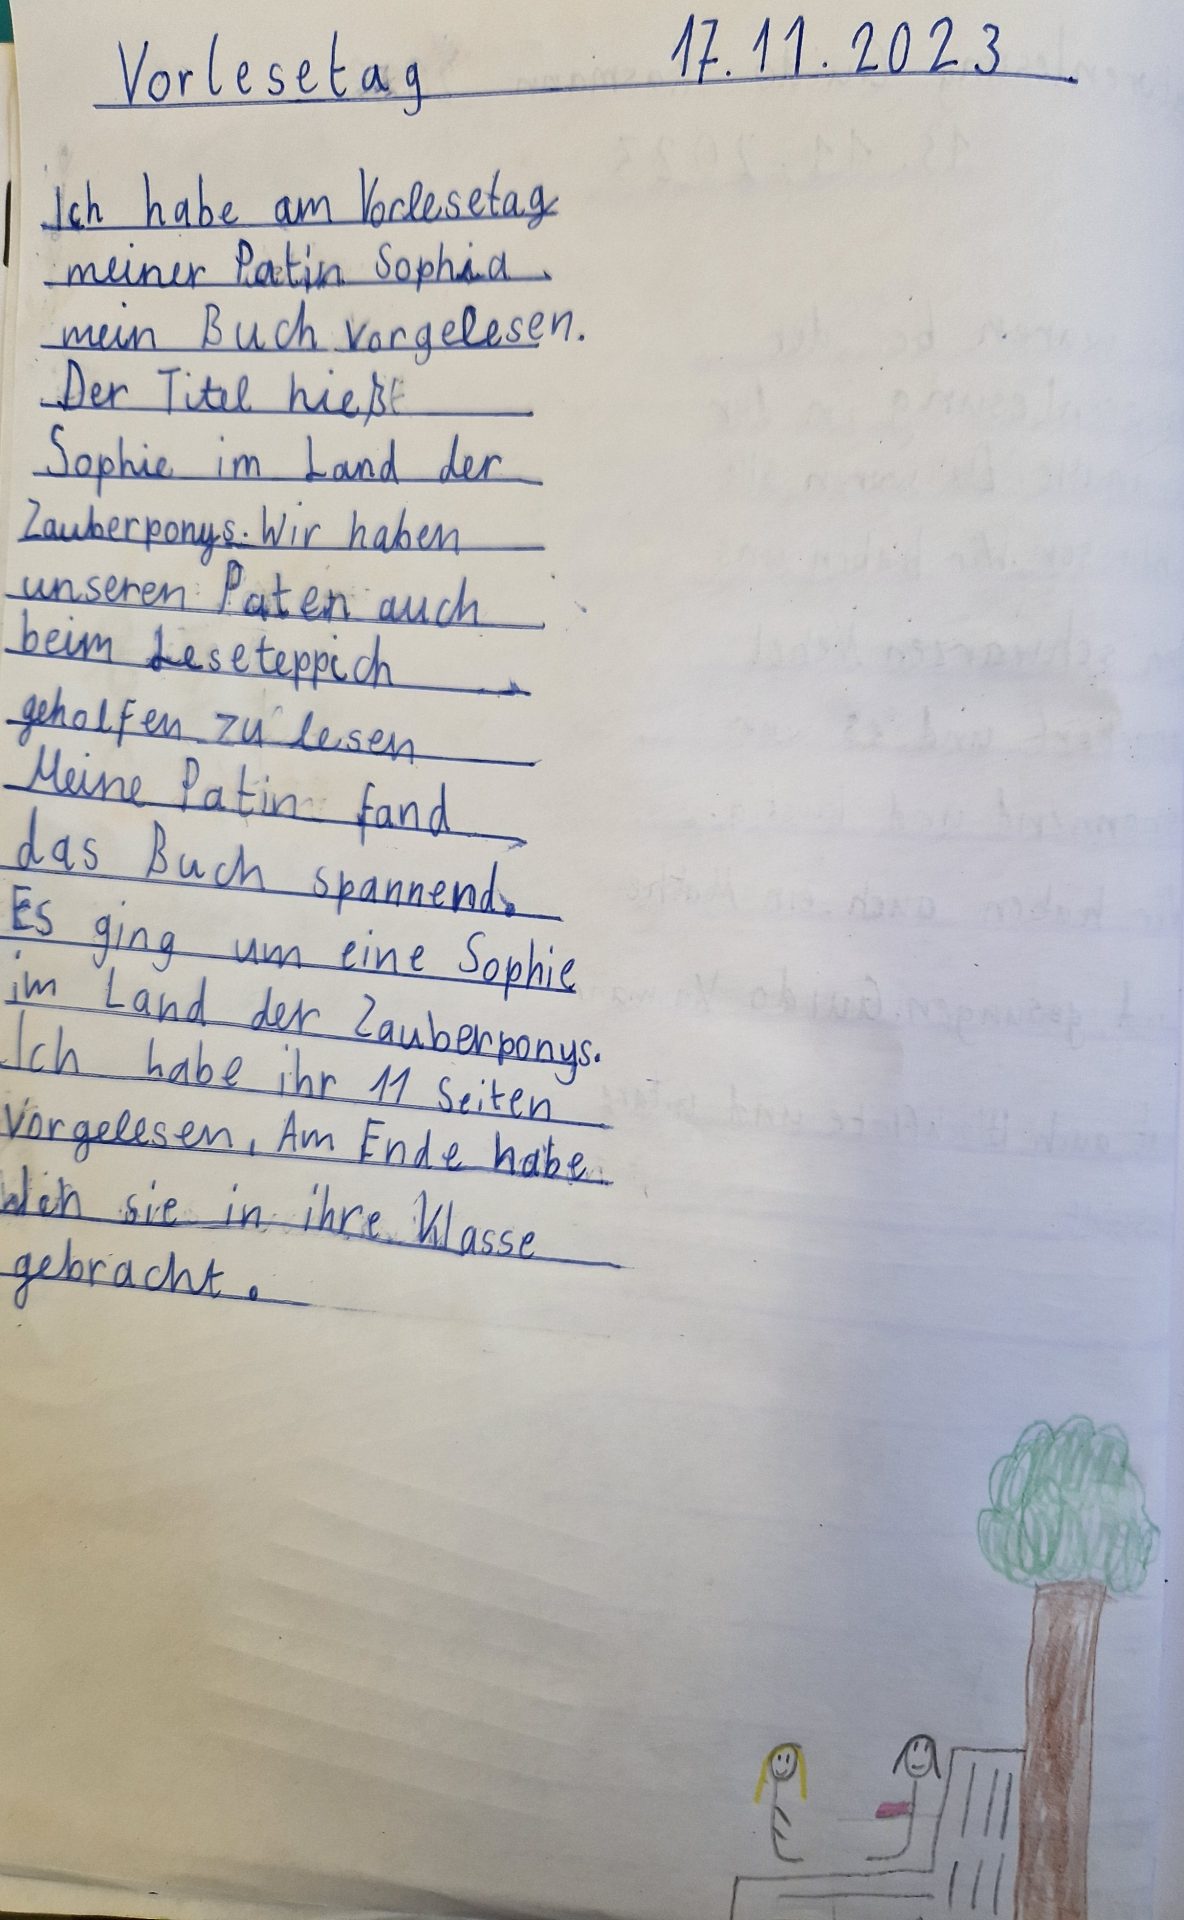 Vorlesetag 17.11.2023
Ich habe am Vorlesetag
meiner Patin Sophia
mein Buch vorgelesen.
Der Titel hießt
Sophie im Land der
Zauberponys. Wir haben
unseren Paten auch
beim Leseteppich
geholfen zu lesen
Meine Patin fand
das Buch spannend.
Es ging um eine Sophie
im Land der Zauberponys.
Ich habe ihr 11 Seiten
vorgelesen. Am Ende habe
ich sie in ihre Klasse
gebracht.